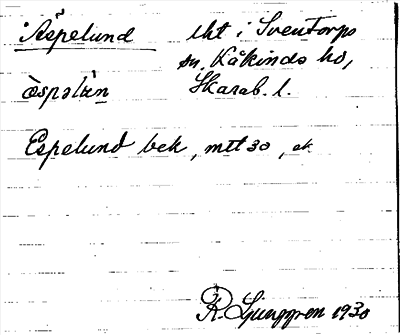 Äspelund uht i Sventorps
sn. Kåkinds hd,
æspəlùn Skarab. l.
Espelund bek, mtt 30, ek
R. Ljunggren 1930